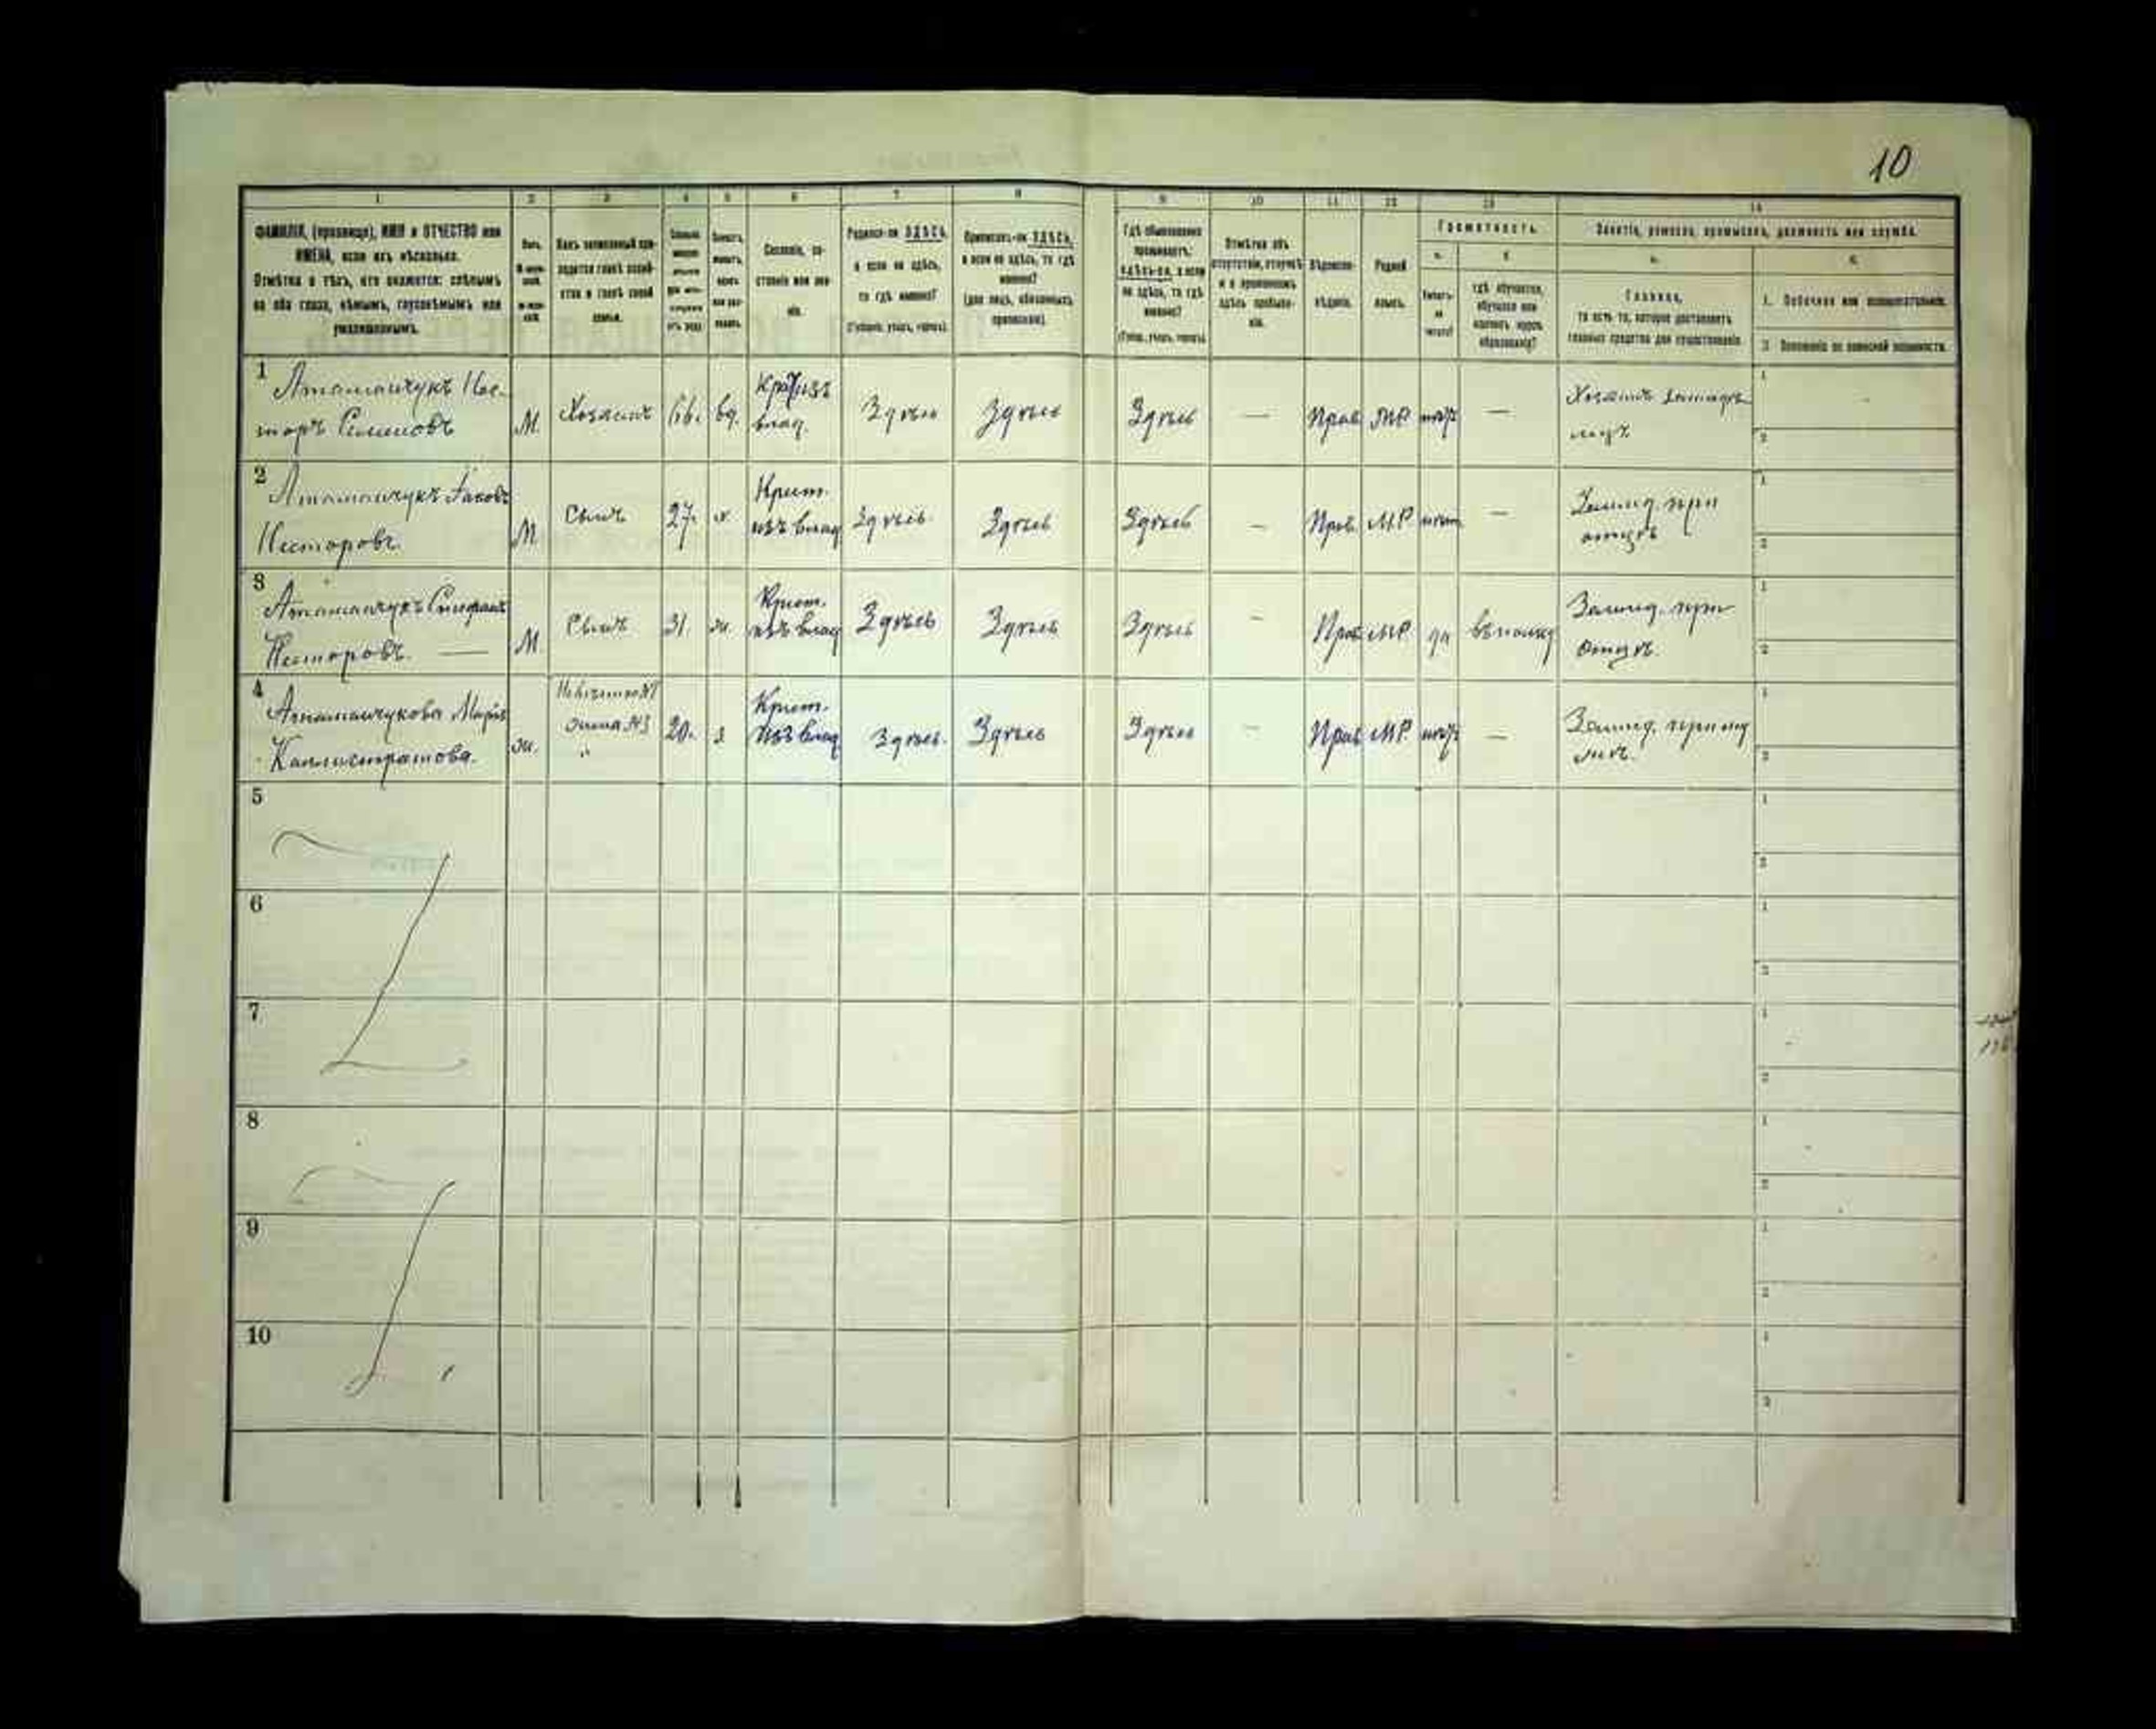 10
1 2 3 4 5 6 7 8 9 10 11 12 13 14
ФАМИЛІЯ, (прозвище), ИМЯ и ОТЧЕСТВО или
ИМЕНА, если ихъ нѣсколько.
Отмѣтка о тѣхъ, кто окажется: слѣпымъ
на оба глаза, нѣмымъ, глухонѣмымъ или
умалишеннымъ.
Полъ.
Какъ записанный при-
ходится главѣ хозяй-
ства и главѣ своей
семьи.
Сословіе, со-
стояніе или зва-
ніе.
Родился-ли ЗДѢСЬ,
а если не здѣсь,
то гдѣ именно?
(Губернія, уѣздъ, городъ).
Приписанъ-ли ЗДѢСЬ,
а если не здѣсь, то гдѣ
именно?
(для лицъ, обязанныхъ
припискою).
Гдѣ обыкновенно
проживаетъ:
здѣсь-ли, а если
не здѣсь, то гдѣ
именно?
(Губер., уѣздъ, городъ).
Отмѣтка объ
отсутствіи, отлучкѣ
и о временномъ
здѣсь пребыва-
ніи.
Вѣроиспо-
вѣданіе.
Родной
языкъ.
Грамотность.
а.
Умѣетъ-
ли
читать?
б.
гдѣ обучается,
обучался или
кончилъ курсъ
образованія?
Занятіе, ремесло, промыселъ, должность или служба.
а.
Главное,
то есть то, которое доставляетъ
главныя средства для существованія.
б.
1. Побочное или вспомогательное.
2. Положеніе по воинской повинности.
1 Атаманчукъ Нес-
торъ Семеновъ М. Хозяинъ 66. вд. Крест изъ влад. Здѣсь Здѣсь Здѣсь — Прав МР нѣтъ —
2 Атаманчукъ Яковъ
Несторовъ М Сынъ 27. х. Крест. изъ влад Здѣсь Здѣсь Здѣсь — Прав. МР нѣт — Землед. при отцѣ
3 Атаманчукъ Стефанъ
Несторовъ. — М Сынъ 31. ж. Крест. изъ влад Здѣсь Здѣсь Здѣсь — Прав МР да въ полку Землед. при отцѣ.
4 Атаманчукова Марія
Каллистратова. ж. Невѣстка №1 жена №3 20. з Крест. изъ влад Здѣсь. Здѣсь Здѣсь — Прав МР нѣтъ — Землед. при му жѣ.
5
6
7
8
9
10